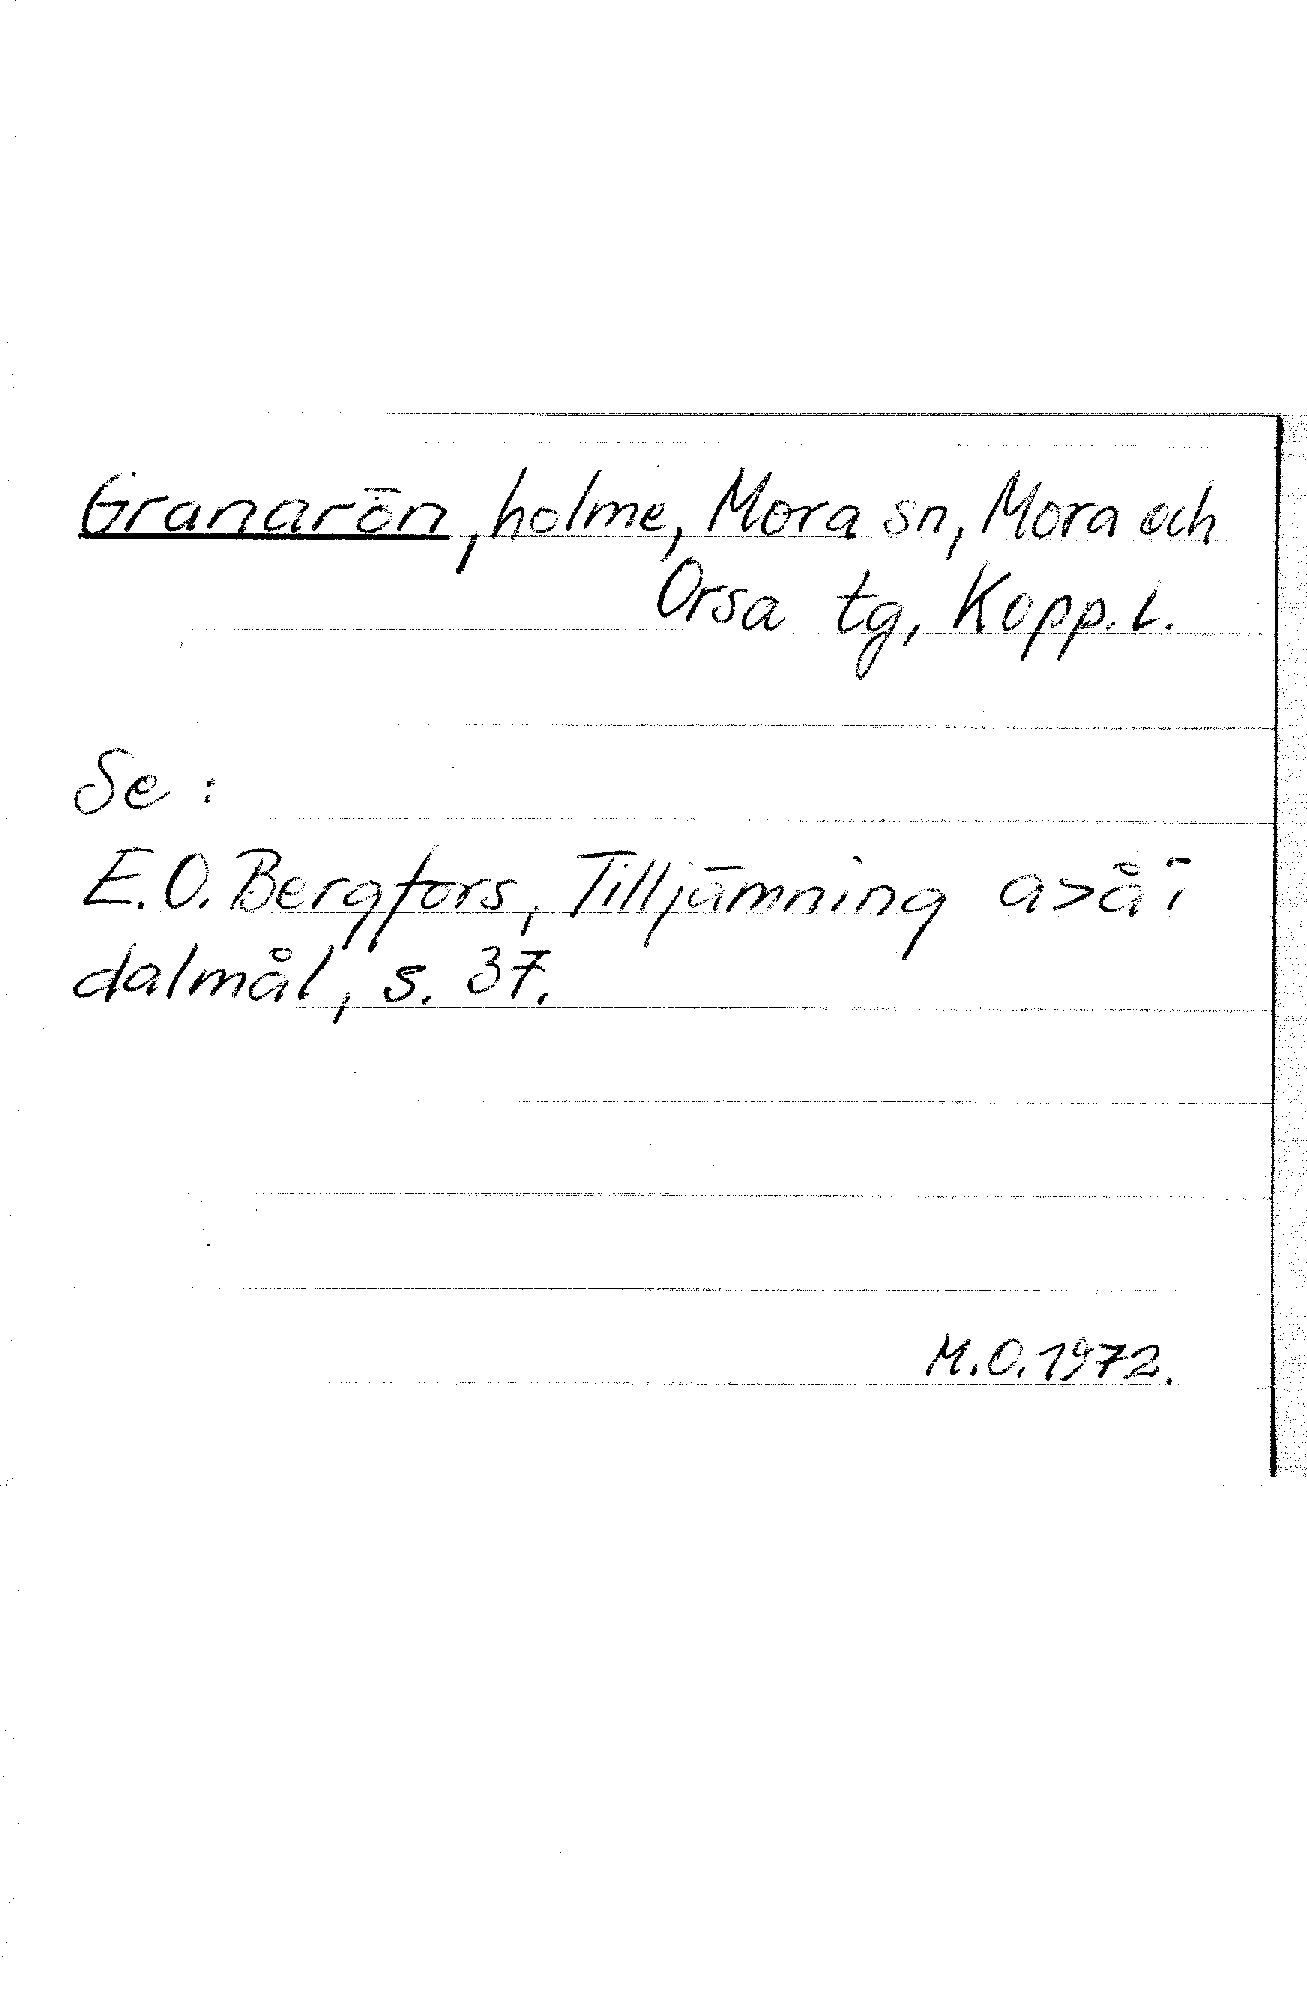 Granarön, holme, Mora sn, Mora och
Orsa tg, Kopp. l.
Se :
E.O. Bergfors, Tilljämning a>å i
dalmål, s. 37.
M.O. 1972.